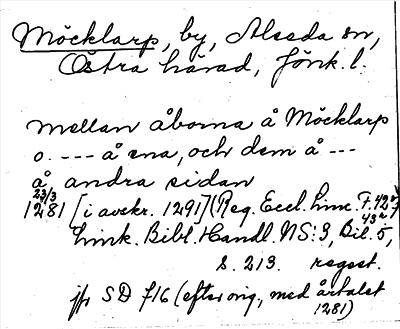 Möcklarp, by, Alseda sn,
Östra härad, Jönk. l.
mellan åborna å Möcklarp
o. --- å ena, och dem å ---
å andra sidan
23/3
1281 [i avskr. 1291] (Reg. Eccl. Linc. F. 42 v
43 r
Link. Bibl. Handl. NS: 3, Bil. 5,
s. 213. regest.
jfr SD 716 (efter orig, med årtalet
1281)